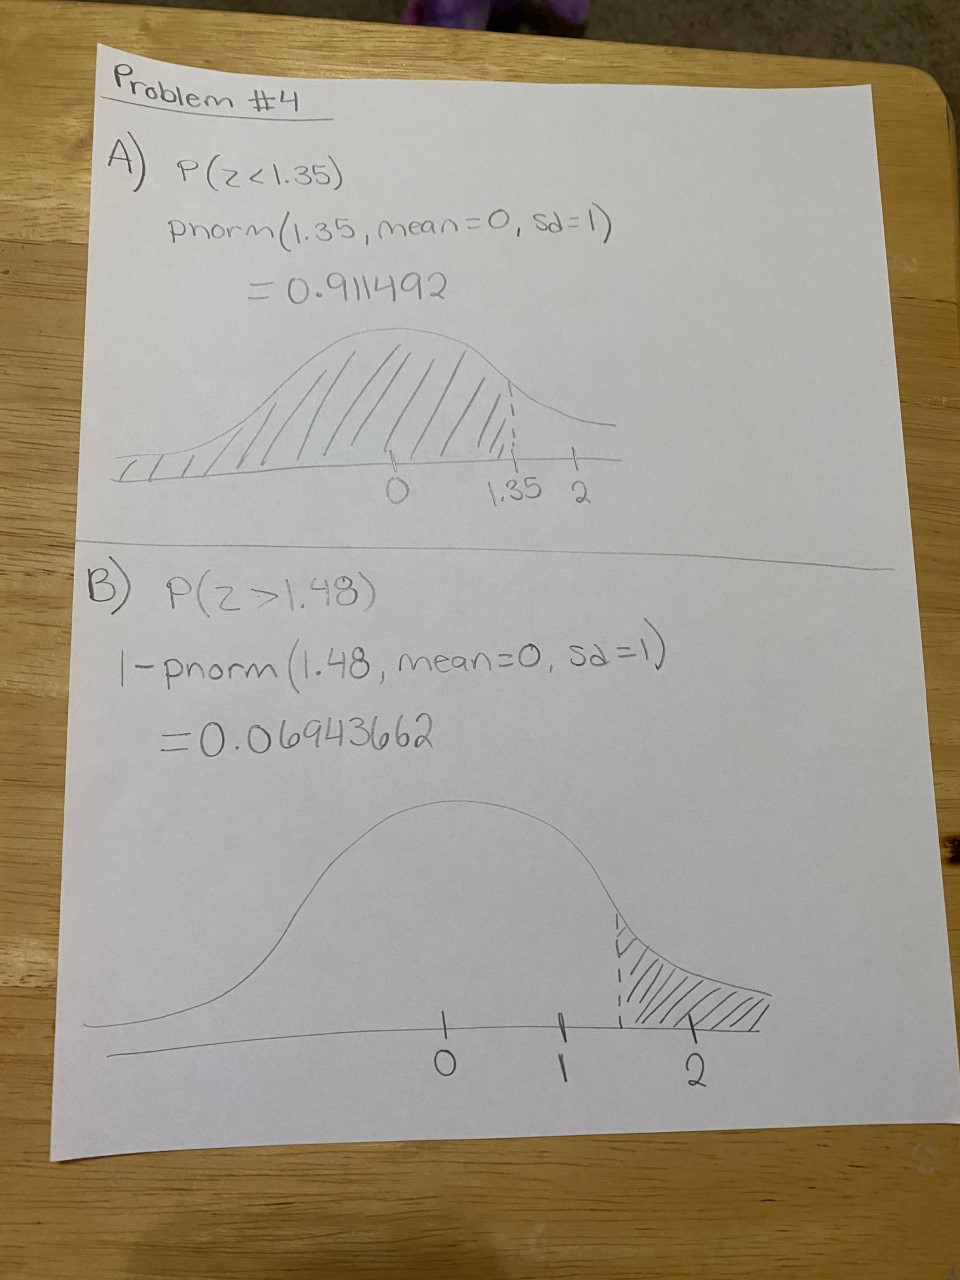 Problem #4
A) P(z<1.35)
pnorm(1.35, mean=0, sd=1)
=0.911492
0 1.35 2
B) P(z>1.48)
1-pnorm(1.48, mean=0, sd=1)
=0.06943662
0 1 2